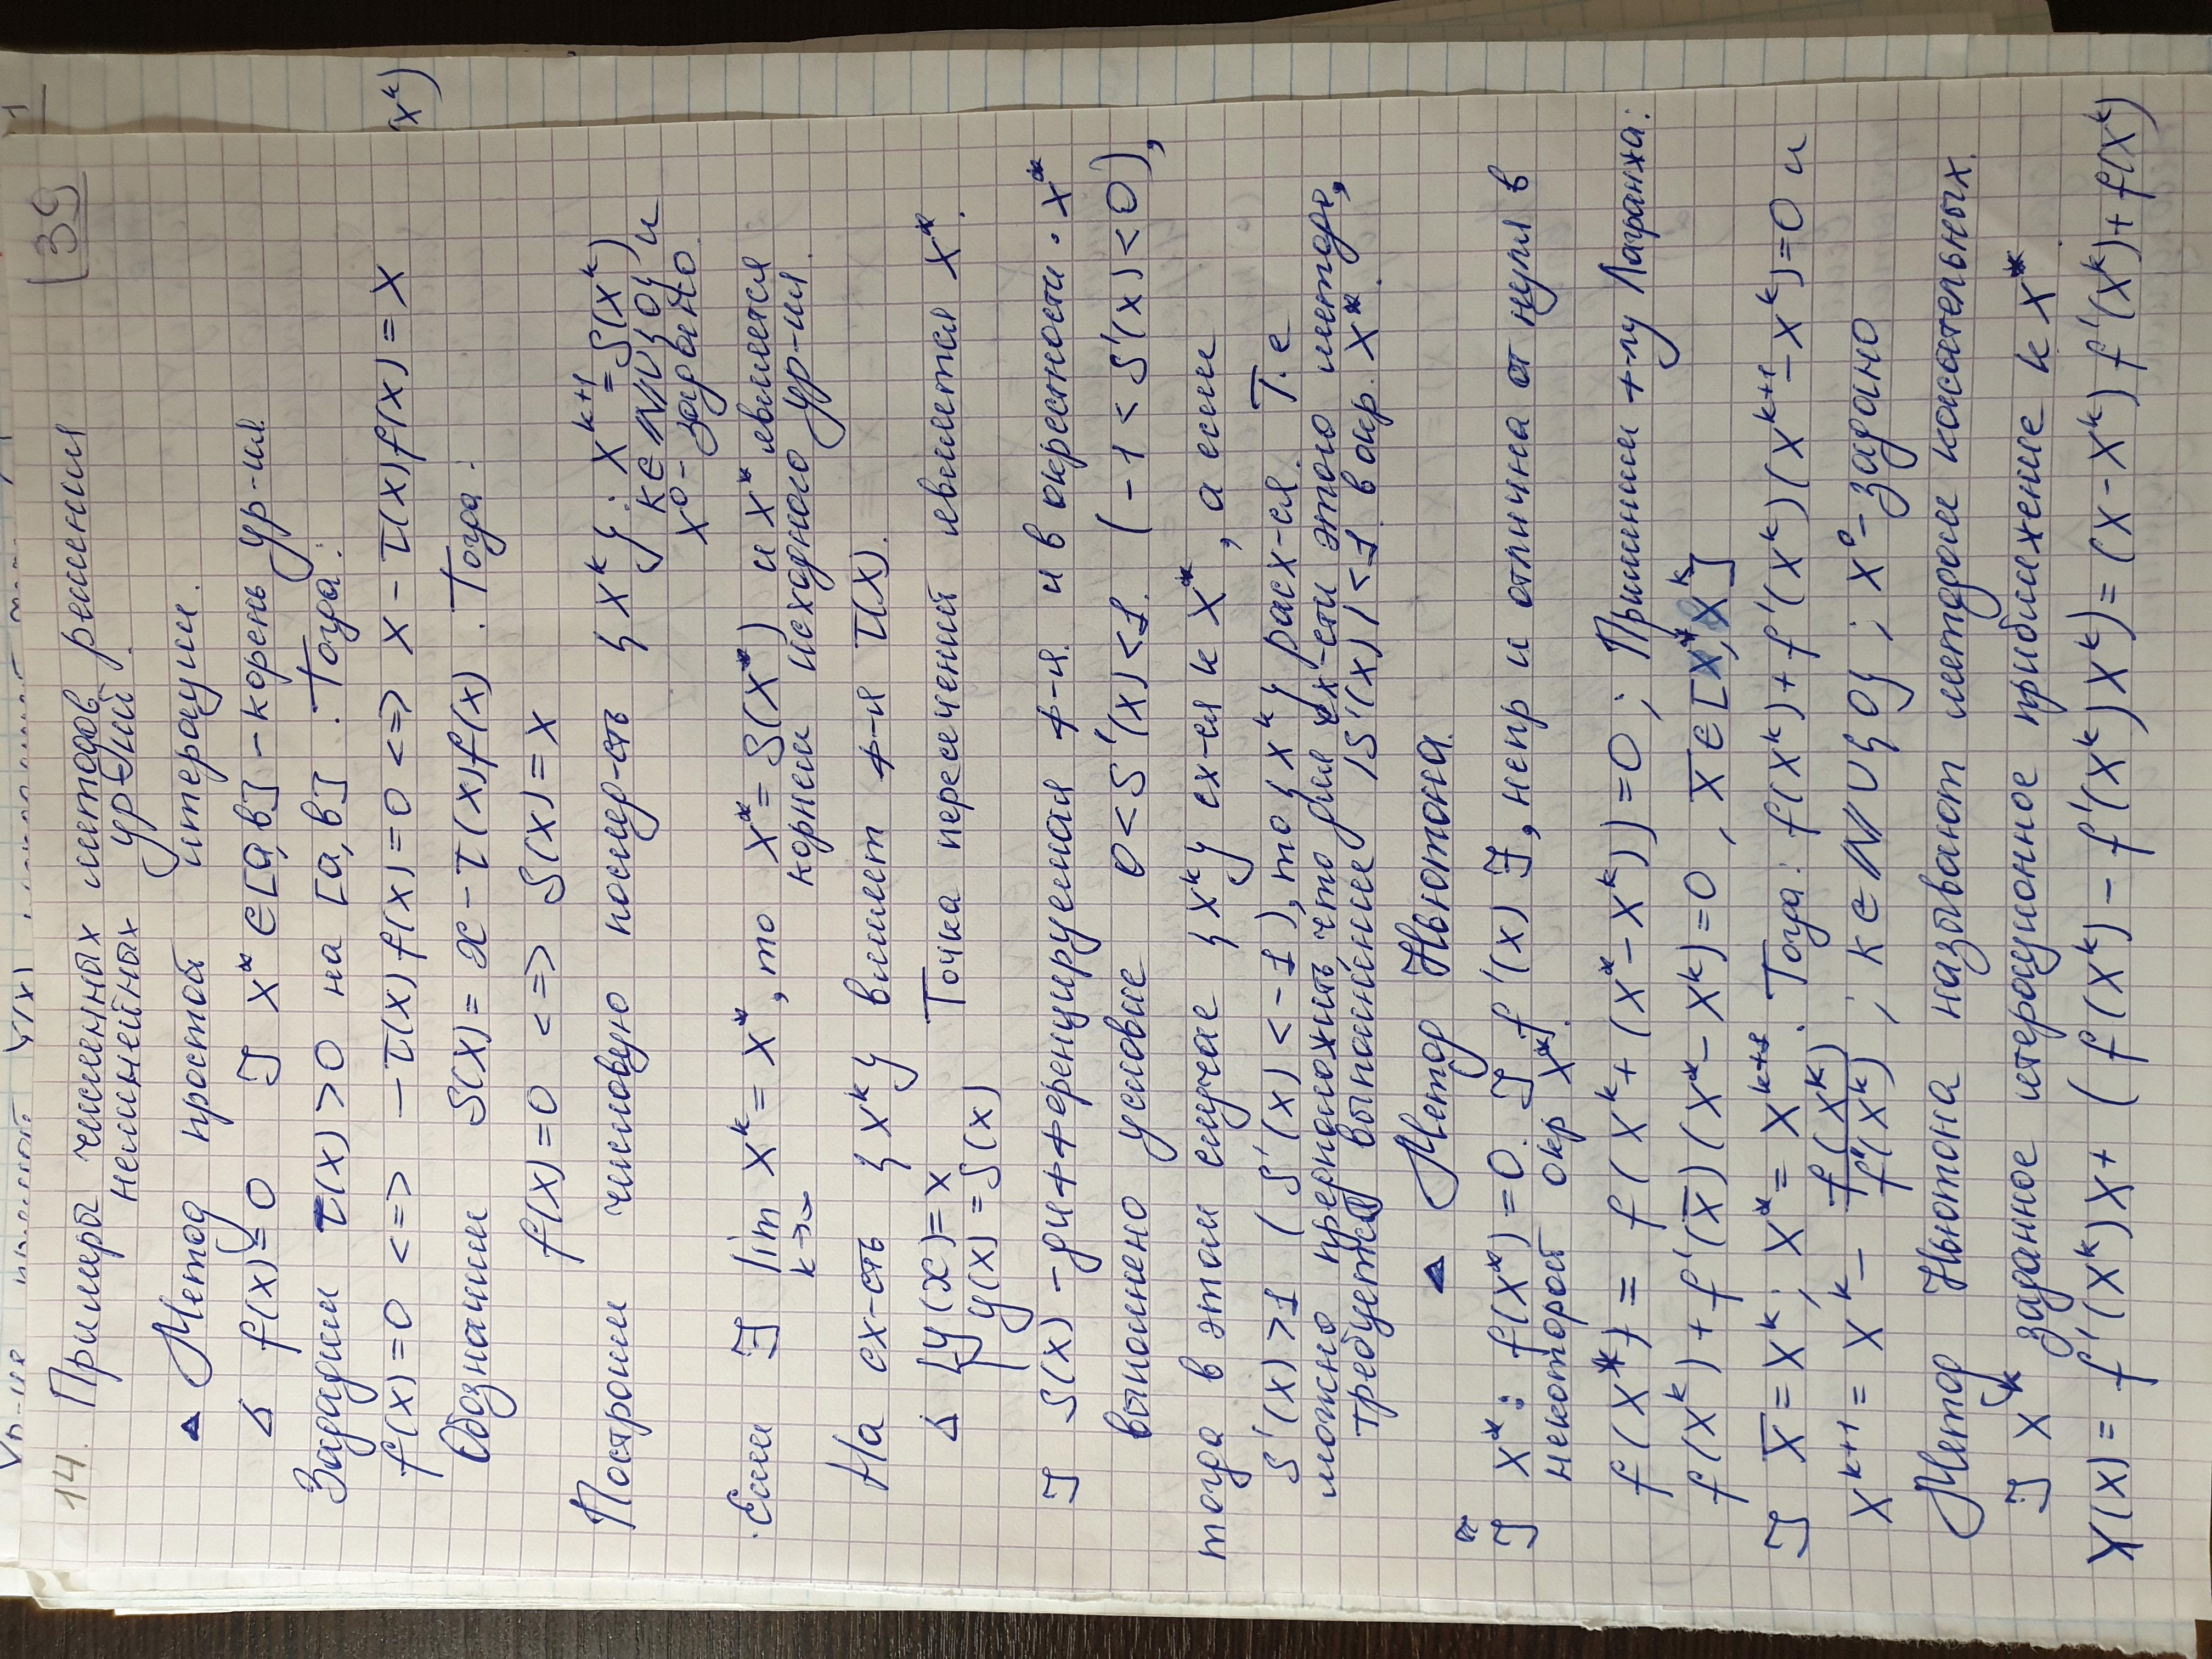 14. Примеры численных методов решения (39)
нелинейных ур-ний.
▲ Метод простой итерации.
Δ f(x)=0 ℐ x* ∈ [a,b] - корень ур-ия.
Зададим τ(x) > 0 на [a,b]. Тогда:
f(x)=0 <=> -τ(x)f(x)=0 <=> x - τ(x)f(x) = x
Обозначим S(x) = x - τ(x)f(x). Тогда:
f(x)=0 <=> S(x)=x
Построим числовую послед-сть {x^k}: x^{k+1} = S(x^k)
k∈ℕ∪{0} и
x^0 - задано.
Если ℐ lim x^k = x*, то x* = S(x*) и x* является
k→∞
корнем исходного ур-ия.
На сх-сть {x^k} влияет ф-я τ(x).
Δ {y(x)=x
y(x)=S(x)
Точка пересечений является x*.
ℐ S(x) - дифференцируемая ф-я. и в окрестности x*
выполнено условие 0 < S'(x) < 1. (-1 < S'(x) < 0),
тогда в этом случае {x^k} сх-ся к x*, а если
S'(x) > 1 (S'(x) < -1), то {x^k} расх-ся. Т.е
можно предположить, что для сх-сти этого метода,
требуется выполнение |S'(x)| < 1 в окр. x*.
▲ Метод Ньютона.
ℐ x*: f(x*)=0. ℐ f'(x) ∃, непр и отлична от нуля в
некоторой окр x*.
f(x*) = f(x^k + (x* - x^k)) = 0; Применим т-му Лагранжа:
f(x^k) + f'(x̄)(x* - x^k) = 0, x̄ ∈ [x*, x^k]
ℐ x̄ = x^k; x* = x^{k+1}. Тогда: f(x^k) + f'(x^k)(x^{k+1} - x^k) = 0 и
x^{k+1} = x^k - f(x^k)/f'(x^k); k∈ℕ∪{0}; x^0 - задано
Метод Ньютона называют методом касательных.
ℐ x^k заданное итерационное приближение к x*.
y(x) = f'(x^k)x + (f(x^k) - f'(x^k)x^k) = (x - x^k)f'(x^k) + f(x^k)
x^k)